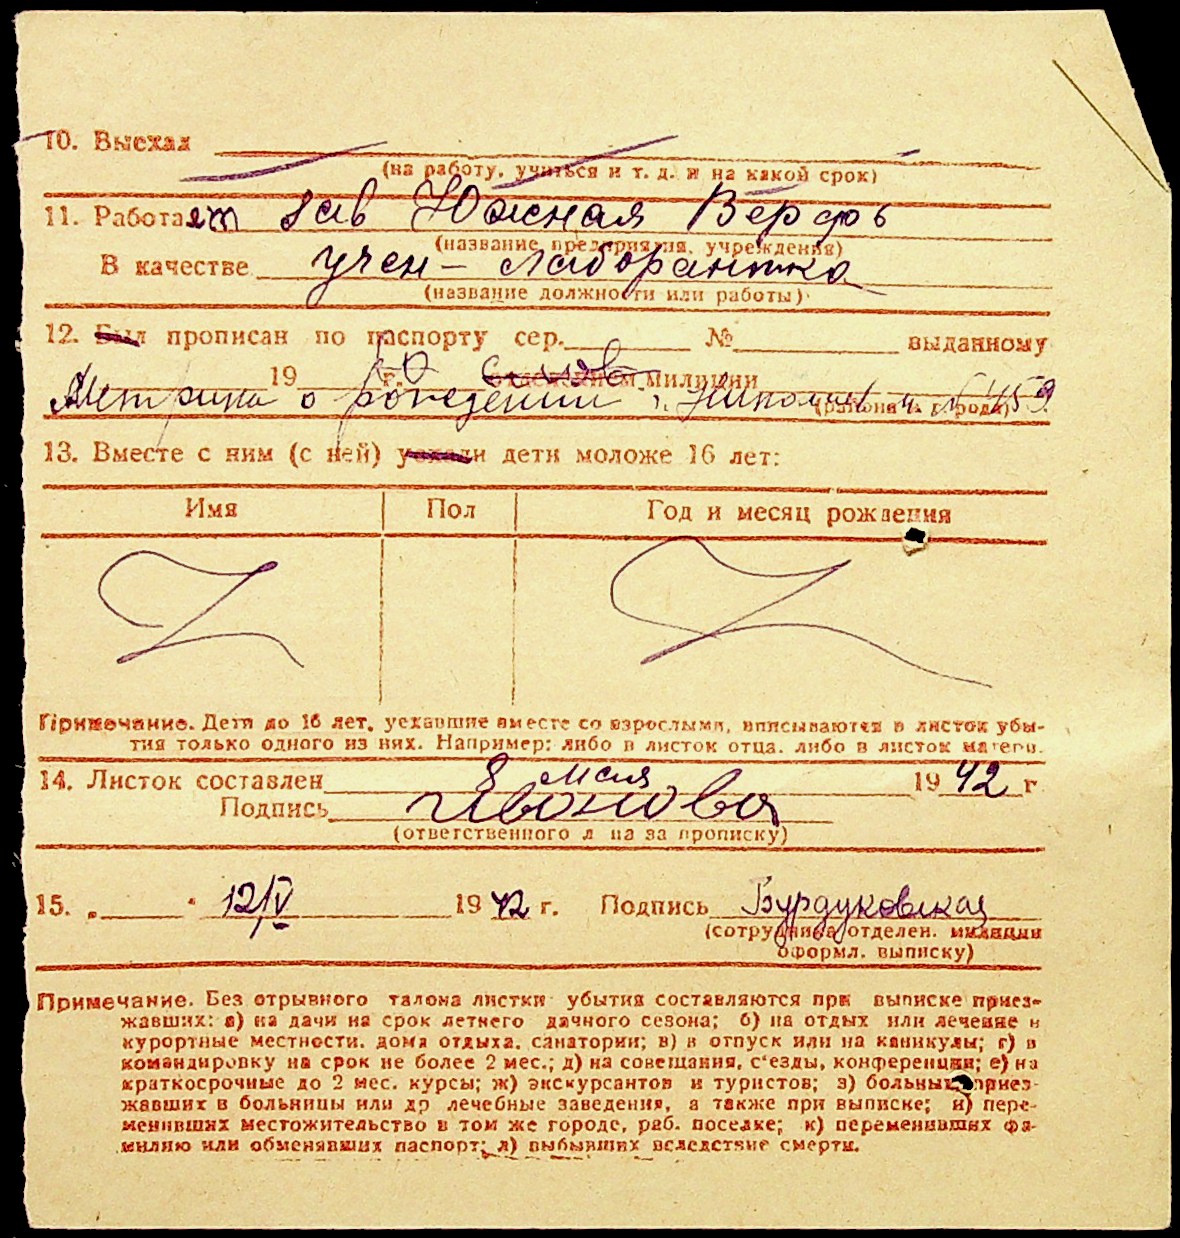 10. Выехал
(на работу, учиться и т. д. и на какой срок)
11. Работает зав Южная Верфь
(название предприятия, учреждения)
В качестве учен - лаборантка
(название должности или работы)
12. Был прописан по паспорту сер. № выданному
19 г. отделением милиции
Метрика о рождении г. Николаев 459
(района и города)
13. Вместе с ним (с ней) уехали дети моложе 16 лет:
Имя Пол Год и месяц рождения
Примечание. Дети до 16 лет, уехавшие вместе со взрослыми, вписываются в листок убы-
тия только одного из них. Например: либо в листок отца, либо в листок матери.
14. Листок составлен 8 мая 1942 г
Подпись Иванова
(ответственного л ца за прописку)
15. " " 12/V 1942 г. Подпись Бурдуковская
(сотрудника отделен. милиции
оформл. выписку)
Примечание. Без отрывного талона листки убытия составляются при выписке приез-
жавших: а) на дачи на срок летнего дачного сезона; б) на отдых или лечение в
курортные местности, дома отдыха, санатории; в) в отпуск или на каникулы; г) в
командировку на срок не более 2 мес.; д) на совещания, с'езды, конференции; е) на
краткосрочные до 2 мес. курсы; ж) экскурсантов и туристов; з) больных приез-
жавших в больницы или др лечебные заведения, а также при выписке; и) пере-
менивших местожительство в том же городе, раб. поселке; к) переменивших фа-
милию или обменявших паспорт; л) выбывших вследствие смерти.